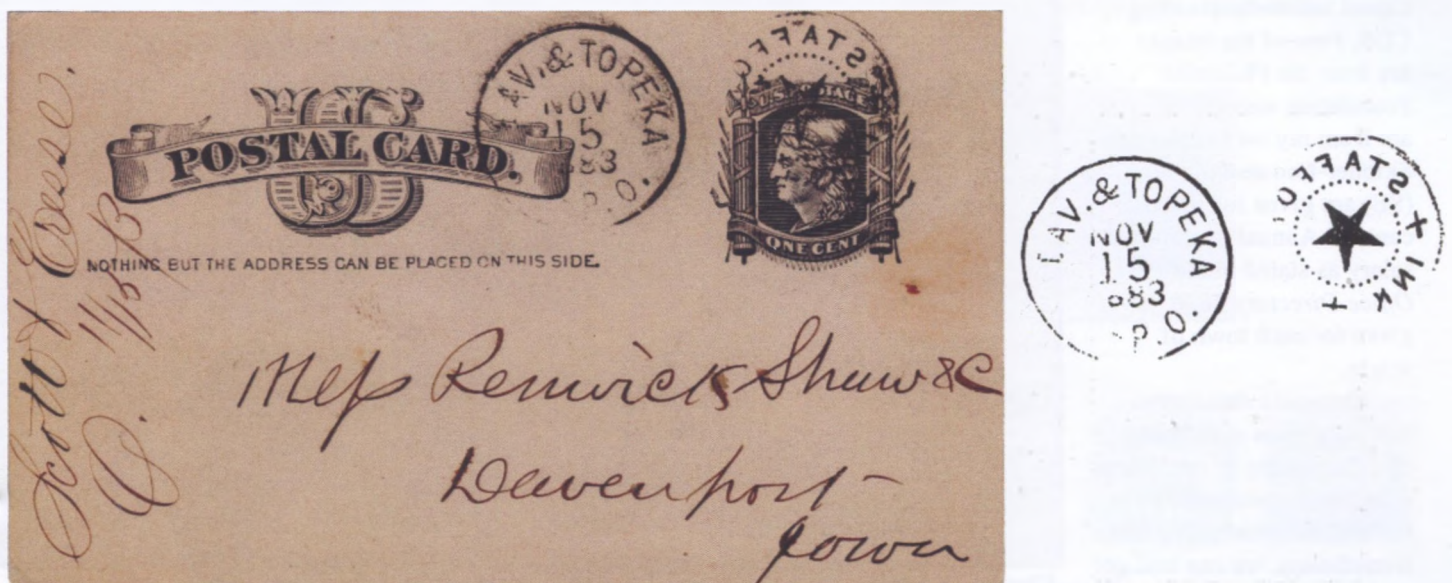 U S
POSTAL CARD.
NOTHING BUT THE ADDRESS CAN BE PLACED ON THIS SIDE.
AV. & TOPEKA
NOV
15
883
P.O.
STAFFO
U.S. POSTAGE
ONE CENT
Scott &
11/15/83
Mess Renwick Shaw & C
Davenport
Iowa
AV. & TOPEKA
NOV
15
883
P.O.
STAFFO
+ INK +